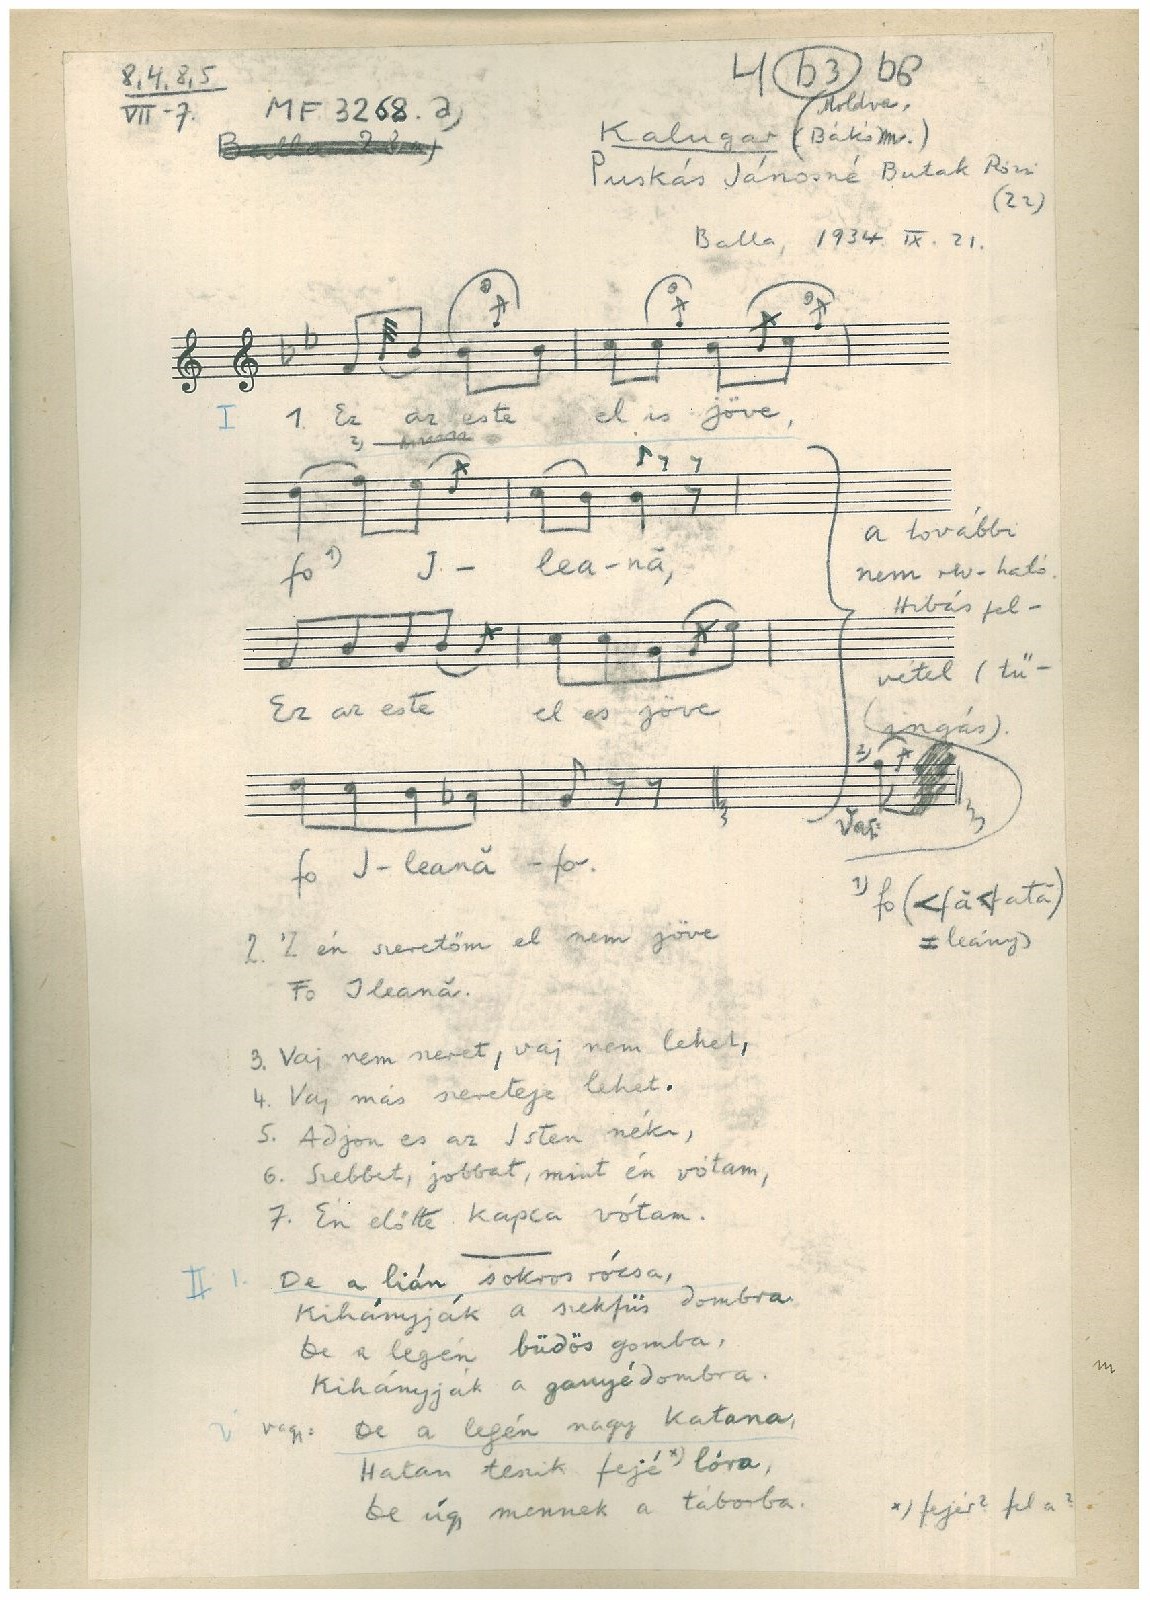 8, 4, 8, 5
VII - 7.
MF 3268. a)
4 b3 b6
Kalugar (Moldva,
Bákó m.)
Puskás Jánosné Butak Rózsi
(22)
Balla, 1934. IX. 21.
I 1. Ez az este el is jöve,
2)
fo 1) I - lea - nă,
Ez az este el es jöve
fo I - leană - fo.
a további
nem ható.
Hibás fel-
vétel (tű-
ingás).
2)
Var:
1) fo (<fă<fată)
= leány)
2. 'Z én szeretőm el nem jöve
Fo Ileană.
3. Vaj nem szeret, vaj nem lehet,
4. Vaj más szereteje lehet.
5. Adjon es az Isten néki,
6. Szebbet, jobbat, mint én vótam,
7. Én előtte kapca vótam.
II 1. De a lián sokros rózsa,
Kihányják a szekfüs dombra.
De a legén büdös gomba,
Kihányják a ganyédombra.
vagy: De a legén nagy katana,
Hatan teszik fejé x) lóra,
De úgy mennek a táborba.
x) fejér? fel a?